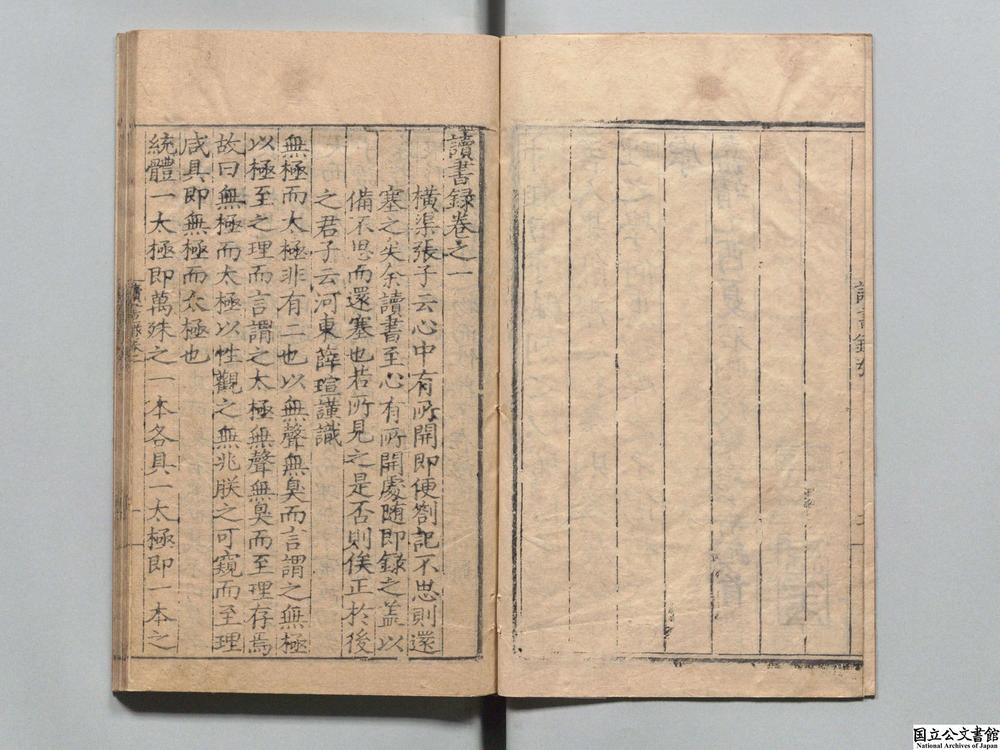 讀書錄卷之一
橫渠張子云心中有所開即便劄記不思則還
塞之矣余讀書至心有所開處隨即錄之盖以
備不思而還塞也若所見之是否則俟正於後
之君子云河東薛瑄謹識
無極而太極非有二也以無聲無臭而言謂之無極
以極至之理而言謂之太極無聲無臭而至理存焉
故曰無極而太極以性觀之無兆朕之可窺而至理
咸具即無極而太極也
統體一太極即萬殊之一本各具一太極即一本之
讀書錄卷一
一
国立公文書館
National Archives of Japan